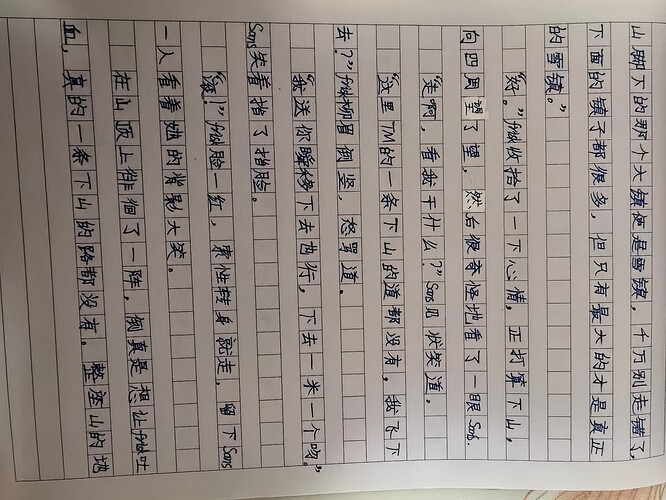 山脚下的那个大镇便是雪镇，千万别走错了，
下面的镇子都很多，但只有最大的才是真正
的雪镇。”
“好。”frisk收拾了一下心情，正打算下山，
向四周望了望，然后很奇怪地看了一眼Sans.
“走啊，看我干什么？”Sans见状笑道。
“这里TM的一条下山的道都没有，我飞下
去？”frisk柳眉倒竖，怒骂道。
“我送你瞬移下去也行，下去一米一个吻。”
Sans笑着指了指脸。
“滚！”frisk脸一红，索性转身就走，留下Sans
一人看着她的背影大笑。
在山顶上徘徊了一阵，倒真是想让frisk吐
血，真的一条下山的路都没有。整座山的地